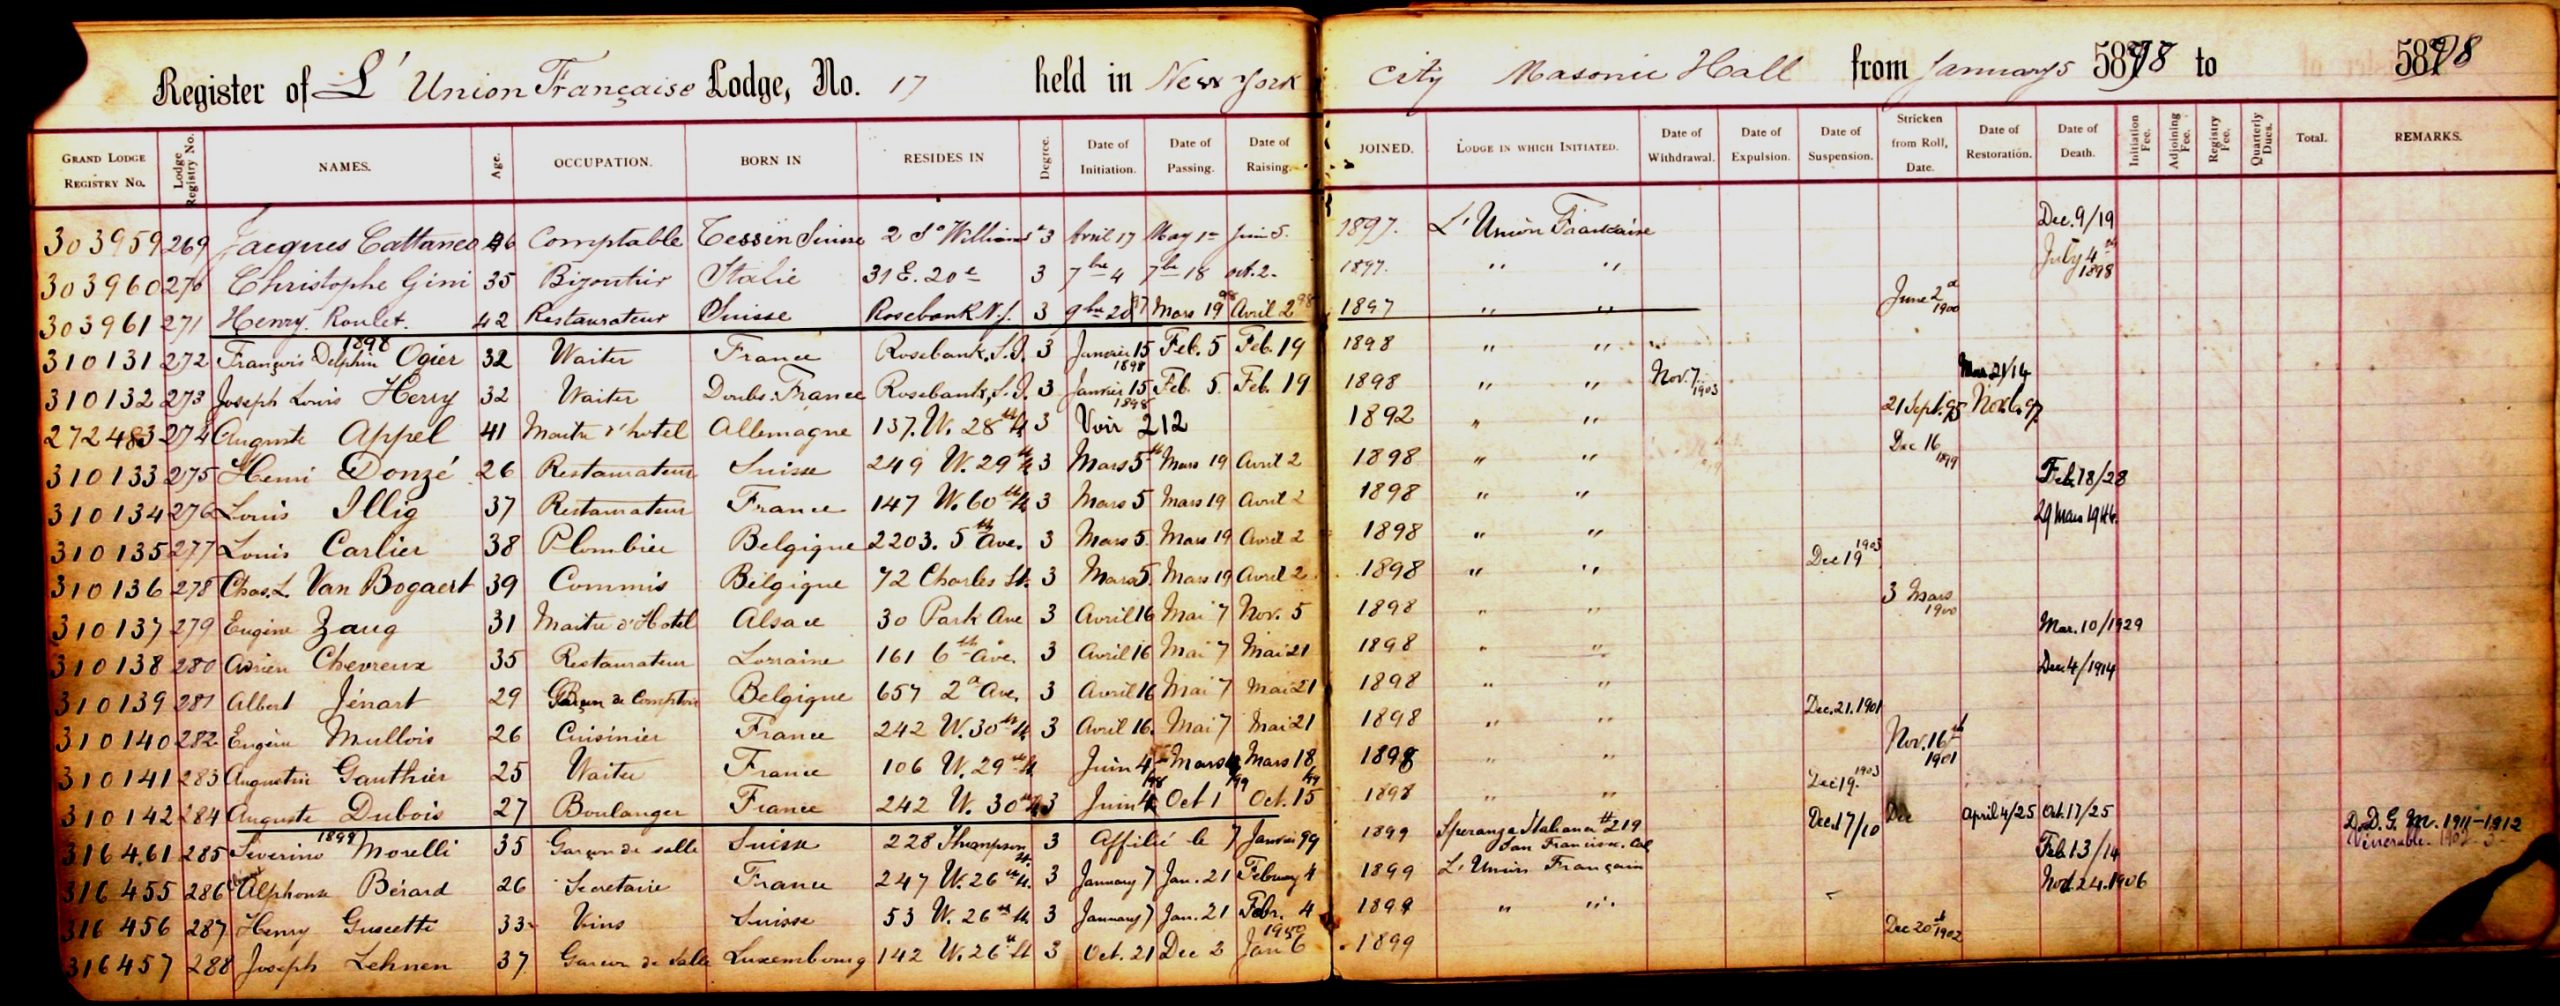 Register of L' Union Française Lodge, No. 17 held in New York City Masonic Hall from January 5 5898 to 5898
GRAND LODGE REGISTRY NO. Lodge Registry No. NAMES. Age. OCCUPATION. BORN IN RESIDES IN Degree. Date of Initiation. Date of Passing. Date of Raising. JOINED. LODGE IN WHICH INITIATED. Date of Withdrawal. Date of Expulsion. Date of Suspension. Stricken from Roll, Date. Date of Restoration. Date of Death. Initiation Fee. Adjoining Fee. Registry Fee. Quarterly Dues. Total. REMARKS.
303959 269 Jacques Cattaneo 46 Comptable Tessin Suisse 2 So William St 3 Avril 17 May 1er Juin 5. 1897. L' Union Francaise Dec. 9/19
303960 270 Christophe Gini 35 Bijoutier Italie 31 E. 20e 3 7bre 4 7bre 18 oct. 2. 1897. " " July 4th 1898
303961 271 Henry Roulet. 42 Restaurateur Suisse Rosebank N.J. 3 9bre 20 97 Mars 19 98 Avril 2 98 1897 " " June 2d 1900
1898
310131 272 François Delphin Ogier 32 Waiter France Rosebank, S.I. 3 Janvier 15 1898 Feb. 5 Feb. 19 1898 " "
310132 273 Joseph Louis Henry 32 Waiter Doubs. France Rosebank, S.I. 3 Janvier 15 1898 Feb. 5. Feb. 19 1898 " " Nov. 7. 1903 Mar 21/14
272483 274 Auguste Appel 41 Maitre d'hotel Allemagne 137. W. 28th St 3 Voir 212 1892 " " 21 Sept. 95 Nov. 6. 97
310133 275 Henri Donzé 26 Restaurateur Suisse 249 W. 29th St 3 Mars 5th Mars 19 Avril 2 1898 " " Dec 16 1899
310134 276 Louis Illig 37 Restaurateur France 147 W. 60th St 3 Mars 5 Mars 19 Avril 2 1898 " " Feb. 18/28
310135 277 Louis Carlier 38 Plombier Belgique 2203. 5th Ave. 3 Mars 5. Mars 19 Avril 2 1898 " " 29 Mars
310136 278 Chas. L. Van Bogaert 39 Commis Bélgique 72 Charles St. 3 Mars 5. Mars 19 Avril 2 1898 " " Dec 19 1903
310137 279 Eugène Zaug 31 Maitre d'Hotel Alsace 30 Park Ave 3 Avril 16 Mai 7 Nov. 5 1898 " " 3 Mars 1900
310138 280 Adrien Chevreux 35 Restaurateur Lorraine 161 6th Ave. 3 Avril 16 Mai 7 Mai 21 1898 " " Mar. 10/1929
310139 281 Albert Jénart 29 Garçon de Comptoir Belgique 657 2d Ave. 3 Avril 16 Mai 7 Mai 21 1898 " " Dec 4/1914
310140 282 Eugène Mullois 26 Cuisinier France 242 W. 30th St 3 Avril 16. Mai 7 Mai 21 1898 " " Dec. 21. 1901
310141 283 Augustin Gauthier 25 Waiter France 106 W. 29th St. Juin 4 98 Mars 4 99 Mars 18 99 1898 " " Nov. 16th 1901
310142 284 Auguste Dubois 27 Boulanger France 242 W. 30th St 3 Juin 4 Oct 1 Oct. 15 1898 " " Dec 19. 1903
1899
316461 285 Séverino Morelli 35 Garçon de salle Suisse 228 Thompson St. 3 Affilié le 7 Janvier 99 1899 Speranza Italiana #219 San Francisco. Cal Dec. 17/10 Dec April 4/25 Oct. 17/25 D.D.G.M. 1911-1912 Vénérable
316455 286 Alphonse Bérard 26 Secretaire France 247 W. 26th St. 3 January 7 Jan. 21 February 4 1899 L' Union Français Feb. 13/14
316456 287 Henry Guscetti 33 Vins Suisse 53 W. 26th St. 3 January 7 Jan. 21 Febr. 4 1899 " " Nov. 24. 1906
316457 288 Joseph Lehnen 37 Garcon de Salle Luxembourg 142 W. 26th St 3 Oct. 21 Dec 2 Jan 6 1900 1899 Dec 20th 1902